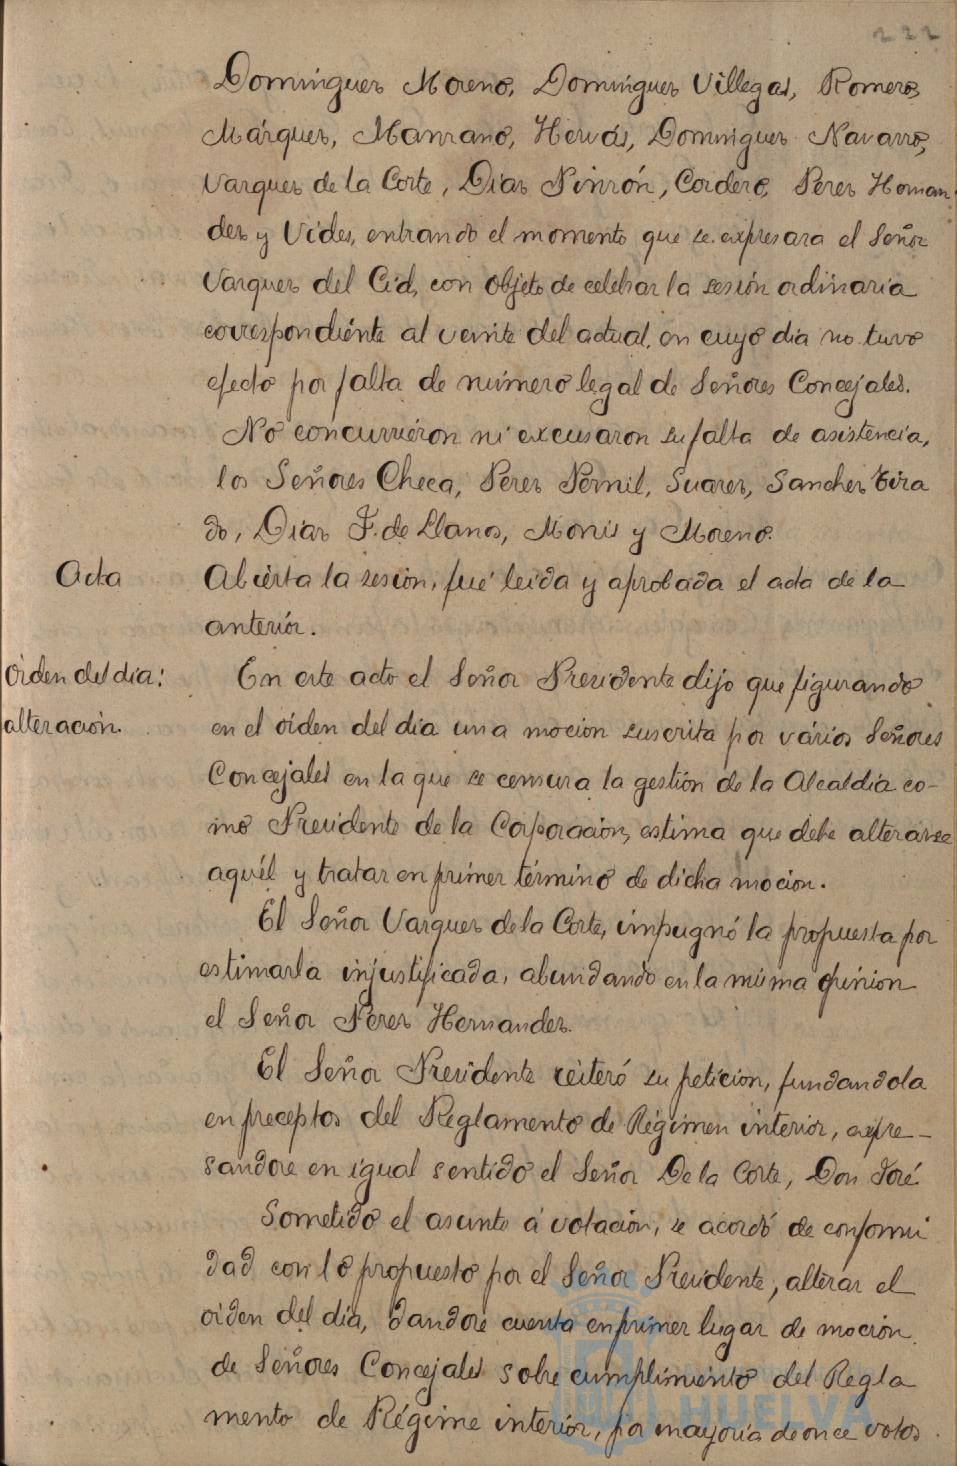 222
Dominguez Moreno, Dominguez Villegas, Romero,
Márquez, Manzano, Hervás, Dominguez Navarro,
Vazquez de la Corte, Diaz Pinzón, Cordero, Perez Hernan
dez y Vides, entrando el momento que se expresara el Señor
Vazquez del Cid, con objeto de celebrar la sesión ordinaria
correspondiénte al veinte del actual, en cuyo dia no tuvo
efecto por falta de número legal de Señores Concejales.
No concurriéron ni excusaron su falta de asistencia,
los Señores Checa, Perez Pernil, Suarez, Sanchez Tira
do, Diaz F. de Llanos, Monis y Moreno.
Acta
Abiérta la sesion, fué leida y aprobada el acta de la
anteriór.
Orden del dia:
alteración.
En este acto el Señor Presidente dijo que figurando
en el órden del dia una mocion suscrita por vários Señores
Concejales en la que se censura la gestión de la Alcaldia co-
mo Presidente de la Corporación, estima que debe alterarse
aquél y tratar en primer término de dicha mocion.
El Señor Vazquez de la Corte, impugnó la propuesta por
estimarla injustificada, abundando en la misma opinion
el Señor Perez Hernandez.
El Señor Presidente reiteró su peticion, fundandola
en preceptos del Reglamento de Régimen interior, expre-
sandose en igual sentido el Señor De la Corte, Don José.
Sometido el asunto á votación, se acordó de conformi
dad con lo propuesto por el Señor Presidente, alterar el
orden del dia, dandose cuenta en primer lugar de moción
de Señores Concejales sobre cumplimiento del Regla
mento de Régime interiór, por mayoria de once votos.
HUELVA